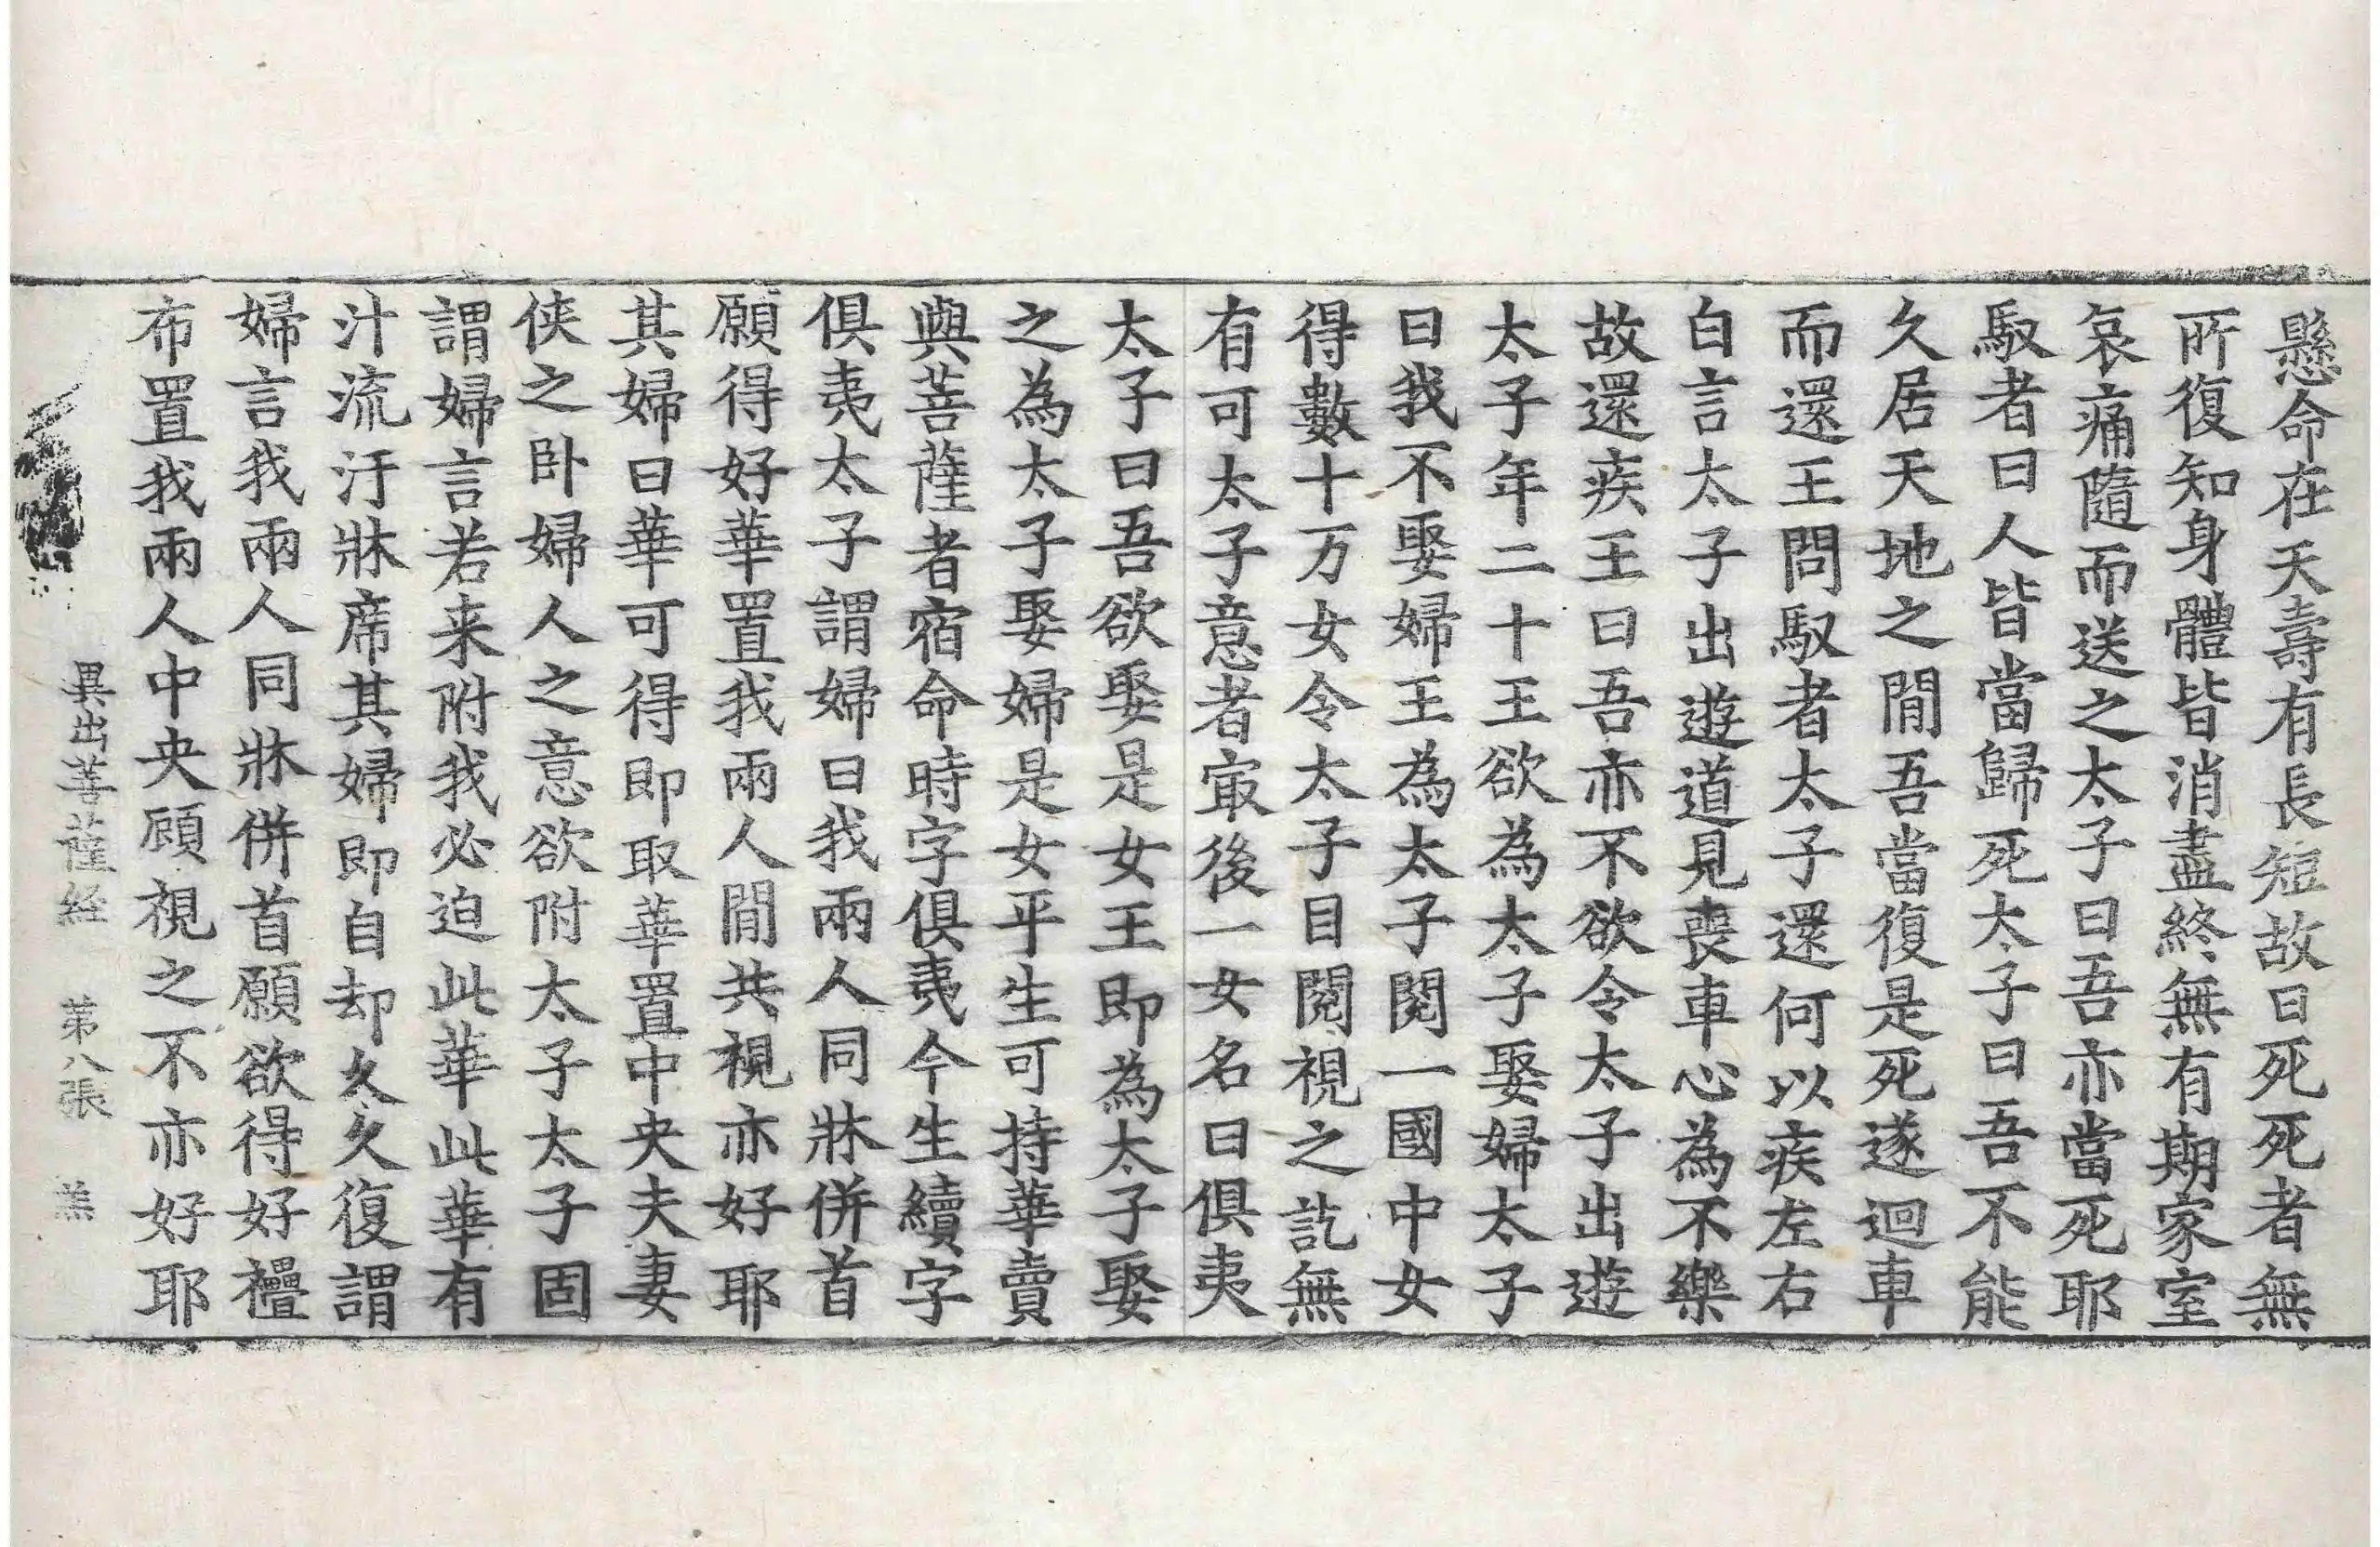 懸命在天壽有長短故曰死死者無
所復知身體皆消盡終無有期家室
哀痛隨而送之太子曰吾亦當死耶
馭者曰人皆當歸死太子曰吾不能
久居天地之閒吾當復是死遂迴車
而還王問馭者太子還何以疾左右
白言太子出遊道見喪車心為不樂
故還疾王曰吾亦不欲令太子出遊
太子年二十王欲為太子娶婦太子
曰我不娶婦王為太子閱一國中女
得數十万女令太子目閱視之訖無
有可太子意者㝡後一女名曰俱夷
太子曰吾欲娶是女王即為太子娶
之為太子娶婦是女平生可持華賣
與菩薩者宿命時字俱夷今生續字
俱夷太子謂婦曰我兩人同牀併首
願得好華置我兩人閒共視亦好耶
其婦曰華可得即取華置中央夫妻
俠之卧婦人之意欲附太子太子固
謂婦言若来附我必迫此華此華有
汁流汙牀席其婦即自却久久復謂
婦言我兩人同牀併首願欲得好㲲
布置我兩人中央顧視之不亦好耶
異出菩薩経 苐八張 羔